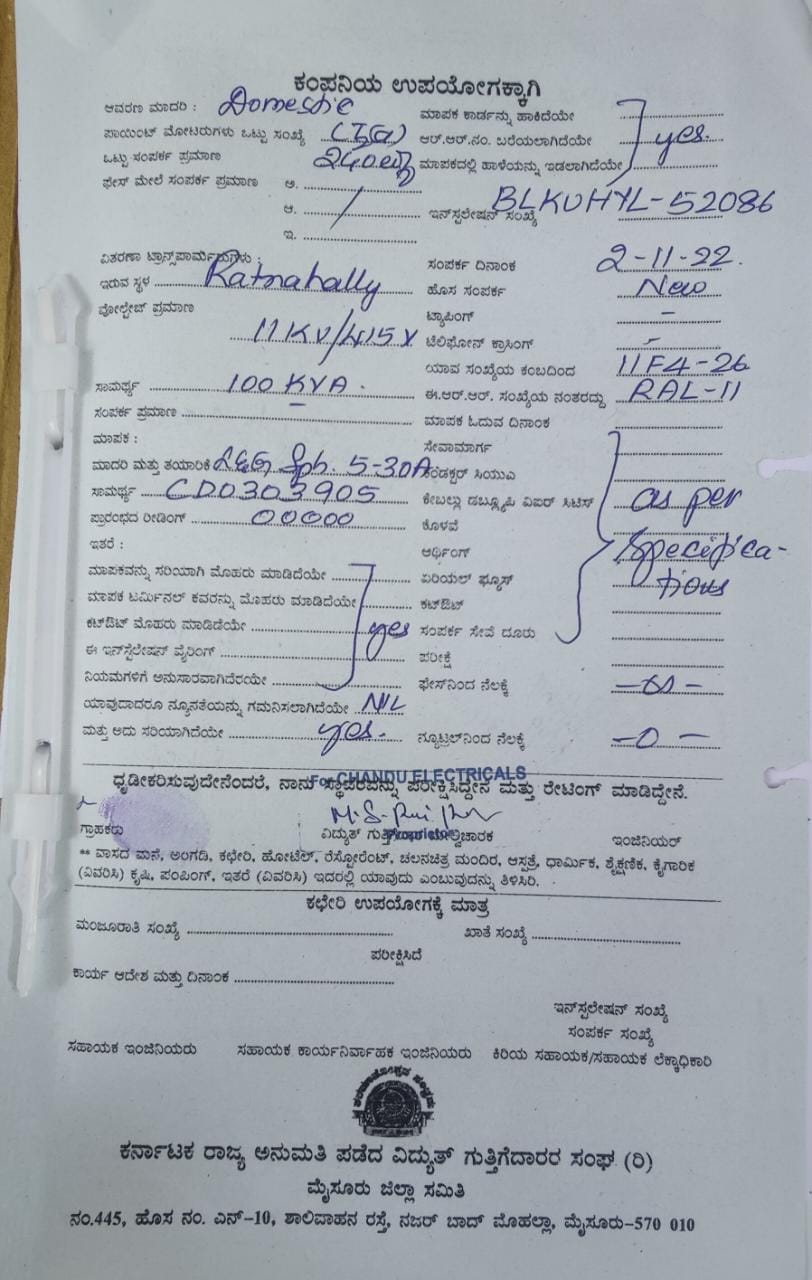 ಕಂಪನಿಯ ಉಪಯೋಗಕ್ಕಾಗಿ
ಆವರಣ ಮಾದರಿ : Domestic ಮಾಪಕ ಕಾರ್ಡನ್ನು ಹಾಕಿದೆಯೇ
ಪಾಯಿಂಟ್ ಮೋಟರುಗಳು ಒಟ್ಟು ಸಂಖ್ಯೆ ಆರ್.ಆರ್.ನಂ. ಬರೆಯಲಾಗಿದೆಯೇ yes.
ಒಟ್ಟು ಸಂಪರ್ಕ ಪ್ರಮಾಣ 240 ಮಾಪಕದಲ್ಲಿ ಹಾಳೆಯನ್ನು ಇಡಲಾಗಿದೆಯೇ
ಫೇಸ್ ಮೇಲೆ ಸಂಪರ್ಕ ಪ್ರಮಾಣ ಅ.
ಆ. ಇನ್‌ಸ್ಟಲೇಷನ್ ಸಂಖ್ಯೆ BLKUHYL-52086
ಇ.
ವಿತರಣಾ ಟ್ರಾನ್ಸ್‌ಪಾರ್ಮರುಗಳು : ಸಂಪರ್ಕ ದಿನಾಂಕ 2-11-22.
ಇರುವ ಸ್ಥಳ Ratnahally ಹೊಸ ಸಂಪರ್ಕ New
ವೋಲ್ಟೇಜ್ ಪ್ರಮಾಣ ಟ್ಯಾಪಿಂಗ್ -
11 KV/415 V ಟೆಲಿಫೋನ್ ಕ್ರಾಸಿಂಗ್ -
ಯಾವ ಸಂಖ್ಯೆಯ ಕಂಬದಿಂದ 11F4-26
ಸಾಮರ್ಥ್ಯ 100 KVA. ಈ.ಆರ್.ಆರ್. ಸಂಖ್ಯೆಯ ನಂತರದ್ದು RAL-11
ಸಂಪರ್ಕ ಪ್ರಮಾಣ - ಮಾಪಕ ಓದುವ ದಿನಾಂಕ
ಮಾಪಕ : ಸೇವಾಮಾರ್ಗ
ಮಾದರಿ ಮತ್ತು ತಯಾರಿಕೆ L&G Sph. 5-30A ಕಂಡಕ್ಟರ್ ಸಿಯುಎ
ಸಾಮರ್ಥ್ಯ CD0303905 ಕೇಬಲ್ಲು ಡಬ್ಲ್ಯೂಪಿ ವಿಪರ್ ಸಿಟಿಸ್ as per
ಪ್ರಾರಂಭದ ರೀಡಿಂಗ್ 00000 ಕೊಳವೆ
ಇತರೆ : ಆರ್ಥಿಂಗ್ specifica-
ಮಾಪಕವನ್ನು ಸರಿಯಾಗಿ ಮೊಹರು ಮಾಡಿದೆಯೇ ಏರಿಯಲ್ ಫ್ಯೂಸ್ tions
ಮಾಪಕ ಟರ್ಮಿನಲ್ ಕವರನ್ನು ಮೊಹರು ಮಾಡಿದೆಯೇ ಕಟ್‌ಔಟ್
ಕಟ್‌ಔಟ್ ಮೊಹರು ಮಾಡಿಡೆಯೇ yes ಸಂಪರ್ಕ ಸೇವೆ ದೂರು
ಈ ಇನ್‌ಸ್ಟಲೇಷನ್ ವೈರಿಂಗ್ ಪರೀಕ್ಷೆ
ನಿಯಮಗಳಿಗೆ ಅನುಸಾರವಾಗಿದೆರಯೇ ಫೇಸ್‌ನಿಂದ ನೆಲಕ್ಕೆ
ಯಾವುದಾದರೂ ನ್ಯೂನತೆಯನ್ನು ಗಮನಿಸಲಾಗಿದೆಯೇ NIL
ಮತ್ತು ಅದು ಸರಿಯಾಗಿದೆಯೇ yes. ನ್ಯೂಟ್ರಲ್‌ನಿಂದ ನೆಲಕ್ಕೆ -0-
For CHANDU ELECTRICALS
ಧೃಡೀಕರಿಸುವುದೇನೆಂದರೆ, ನಾನು ಸ್ಥಾವರವನ್ನು ಪರೀಕ್ಷಿಸಿದ್ದೇನೆ ಮತ್ತು ರೇಟಿಂಗ್ ಮಾಡಿದ್ದೇನೆ.
ಗ್ರಾಹಕರು ವಿದ್ಯುತ್ Proprietor ಇಂಜಿನಿಯರ್
** ವಾಸದ ಮನೆ, ಅಂಗಡಿ, ಕಛೇರಿ, ಹೋಟೆಲ್, ರೆಸ್ಟೋರೆಂಟ್, ಚಲನಚಿತ್ರ ಮಂದಿರ, ಆಸ್ಪತ್ರೆ, ಧಾರ್ಮಿಕ, ಶೈಕ್ಷಣಿಕ, ಕೈಗಾರಿಕ
(ವಿವರಿಸಿ) ಕೃಷಿ, ಪಂಪಿಂಗ್, ಇತರೆ (ವಿವರಿಸಿ) ಇದರಲ್ಲಿ ಯಾವುದು ಎಂಬುವುದನ್ನು ತಿಳಿಸಿರಿ.
ಕಛೇರಿ ಉಪಯೋಗಕ್ಕೆ ಮಾತ್ರ
ಮಂಜೂರಾತಿ ಸಂಖ್ಯೆ ಖಾತೆ ಸಂಖ್ಯೆ
ಪರೀಕ್ಷಿಸಿದೆ
ಕಾರ್ಯ ಆದೇಶ ಮತ್ತು ದಿನಾಂಕ
ಇನ್‌ಸ್ಪಲೇಷನ್ ಸಂಖ್ಯೆ
ಸಂಪರ್ಕ ಸಂಖ್ಯೆ
ಸಹಾಯಕ ಇಂಜಿನಿಯರು ಸಹಾಯಕ ಕಾರ್ಯನಿರ್ವಾಹಕ ಇಂಜಿನಿಯರು ಕಿರಿಯ ಸಹಾಯಕ/ಸಹಾಯಕ ಲೆಕ್ಕಾಧಿಕಾರಿ
ಕರ್ನಾಟಕ ರಾಜ್ಯ ಅನುಮತಿ ಪಡೆದ ವಿದ್ಯುತ್ ಗುತ್ತಿಗೆದಾರರ ಸಂಘ (ರಿ)
ಮೈಸೂರು ಜಿಲ್ಲಾ ಸಮಿತಿ
ನಂ.445, ಹೊಸ ನಂ. ಎನ್-10, ಶಾಲಿವಾಹನ ರಸ್ತೆ, ನಜರ್ ಬಾದ್ ಮೊಹಲ್ಲಾ, ಮೈಸೂರು-570 010